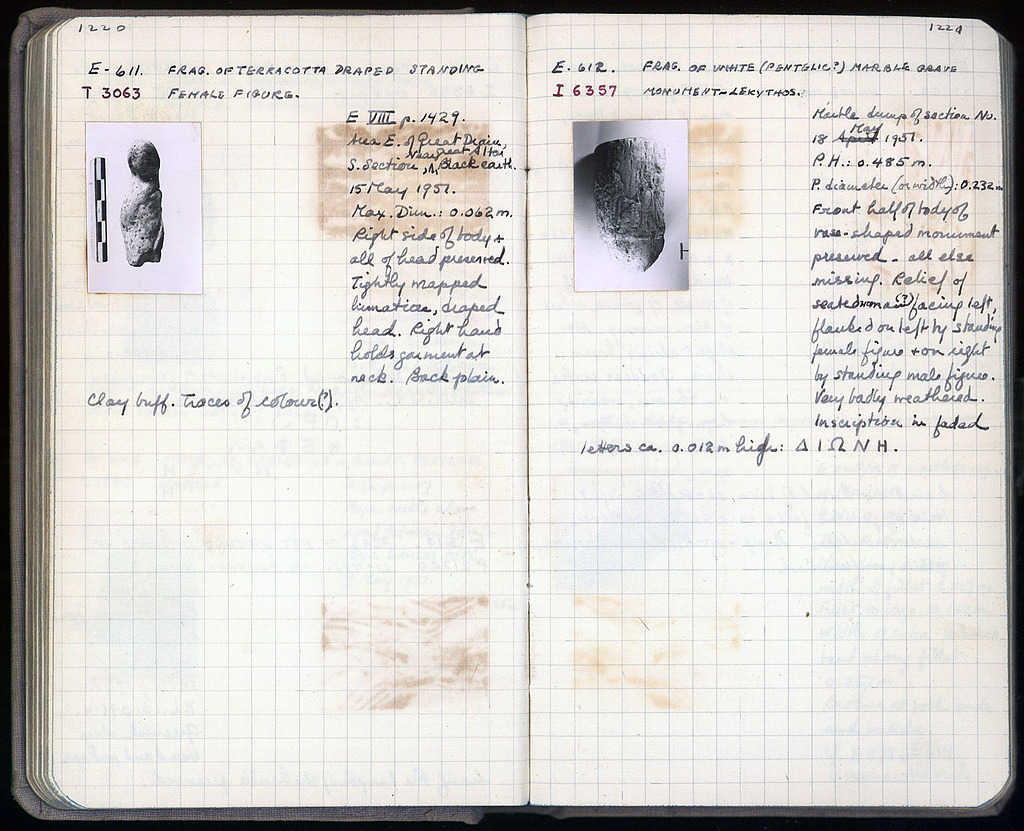 1220
E-611. FRAG. OF TERRACOTTA DRAPED STANDING
T 3063 FEMALE FIGURE.
E VIII p. 1429.
Area E. of Great Drain,
near Great Altar
S. Section, Black earth.
15 May 1951.
Max. Dim.: 0.062 m.
Right side of body +
all of head preserved.
Tightly wrapped
himation, draped
head. Right hand
holds garment at
neck. Back plain.
Clay buff. Traces of colour(?).
1221
E-612. FRAG. OF WHITE (PENTELIC?) MARBLE GRAVE
I 6357 MONUMENT-LEKYTHOS.
Marble dump of section No.
May
18 April 1951.
P.H.: 0.485 m.
P. diameter (or width): 0.232 m
Front half of body of
vase-shaped monument
preserved - all else
missing. Relief of
seated woman(?) facing left,
flanked on left by standing
female figure + on right
by standing male figure.
Very badly weathered.
Inscription in faded
letters ca. 0.012 m high: Δ Ι Ω Ν Η.